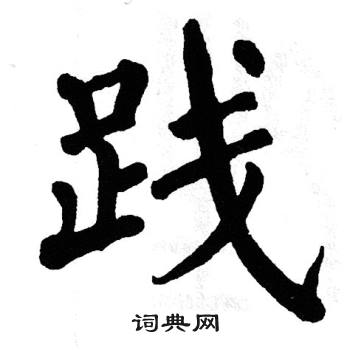 践
词典网